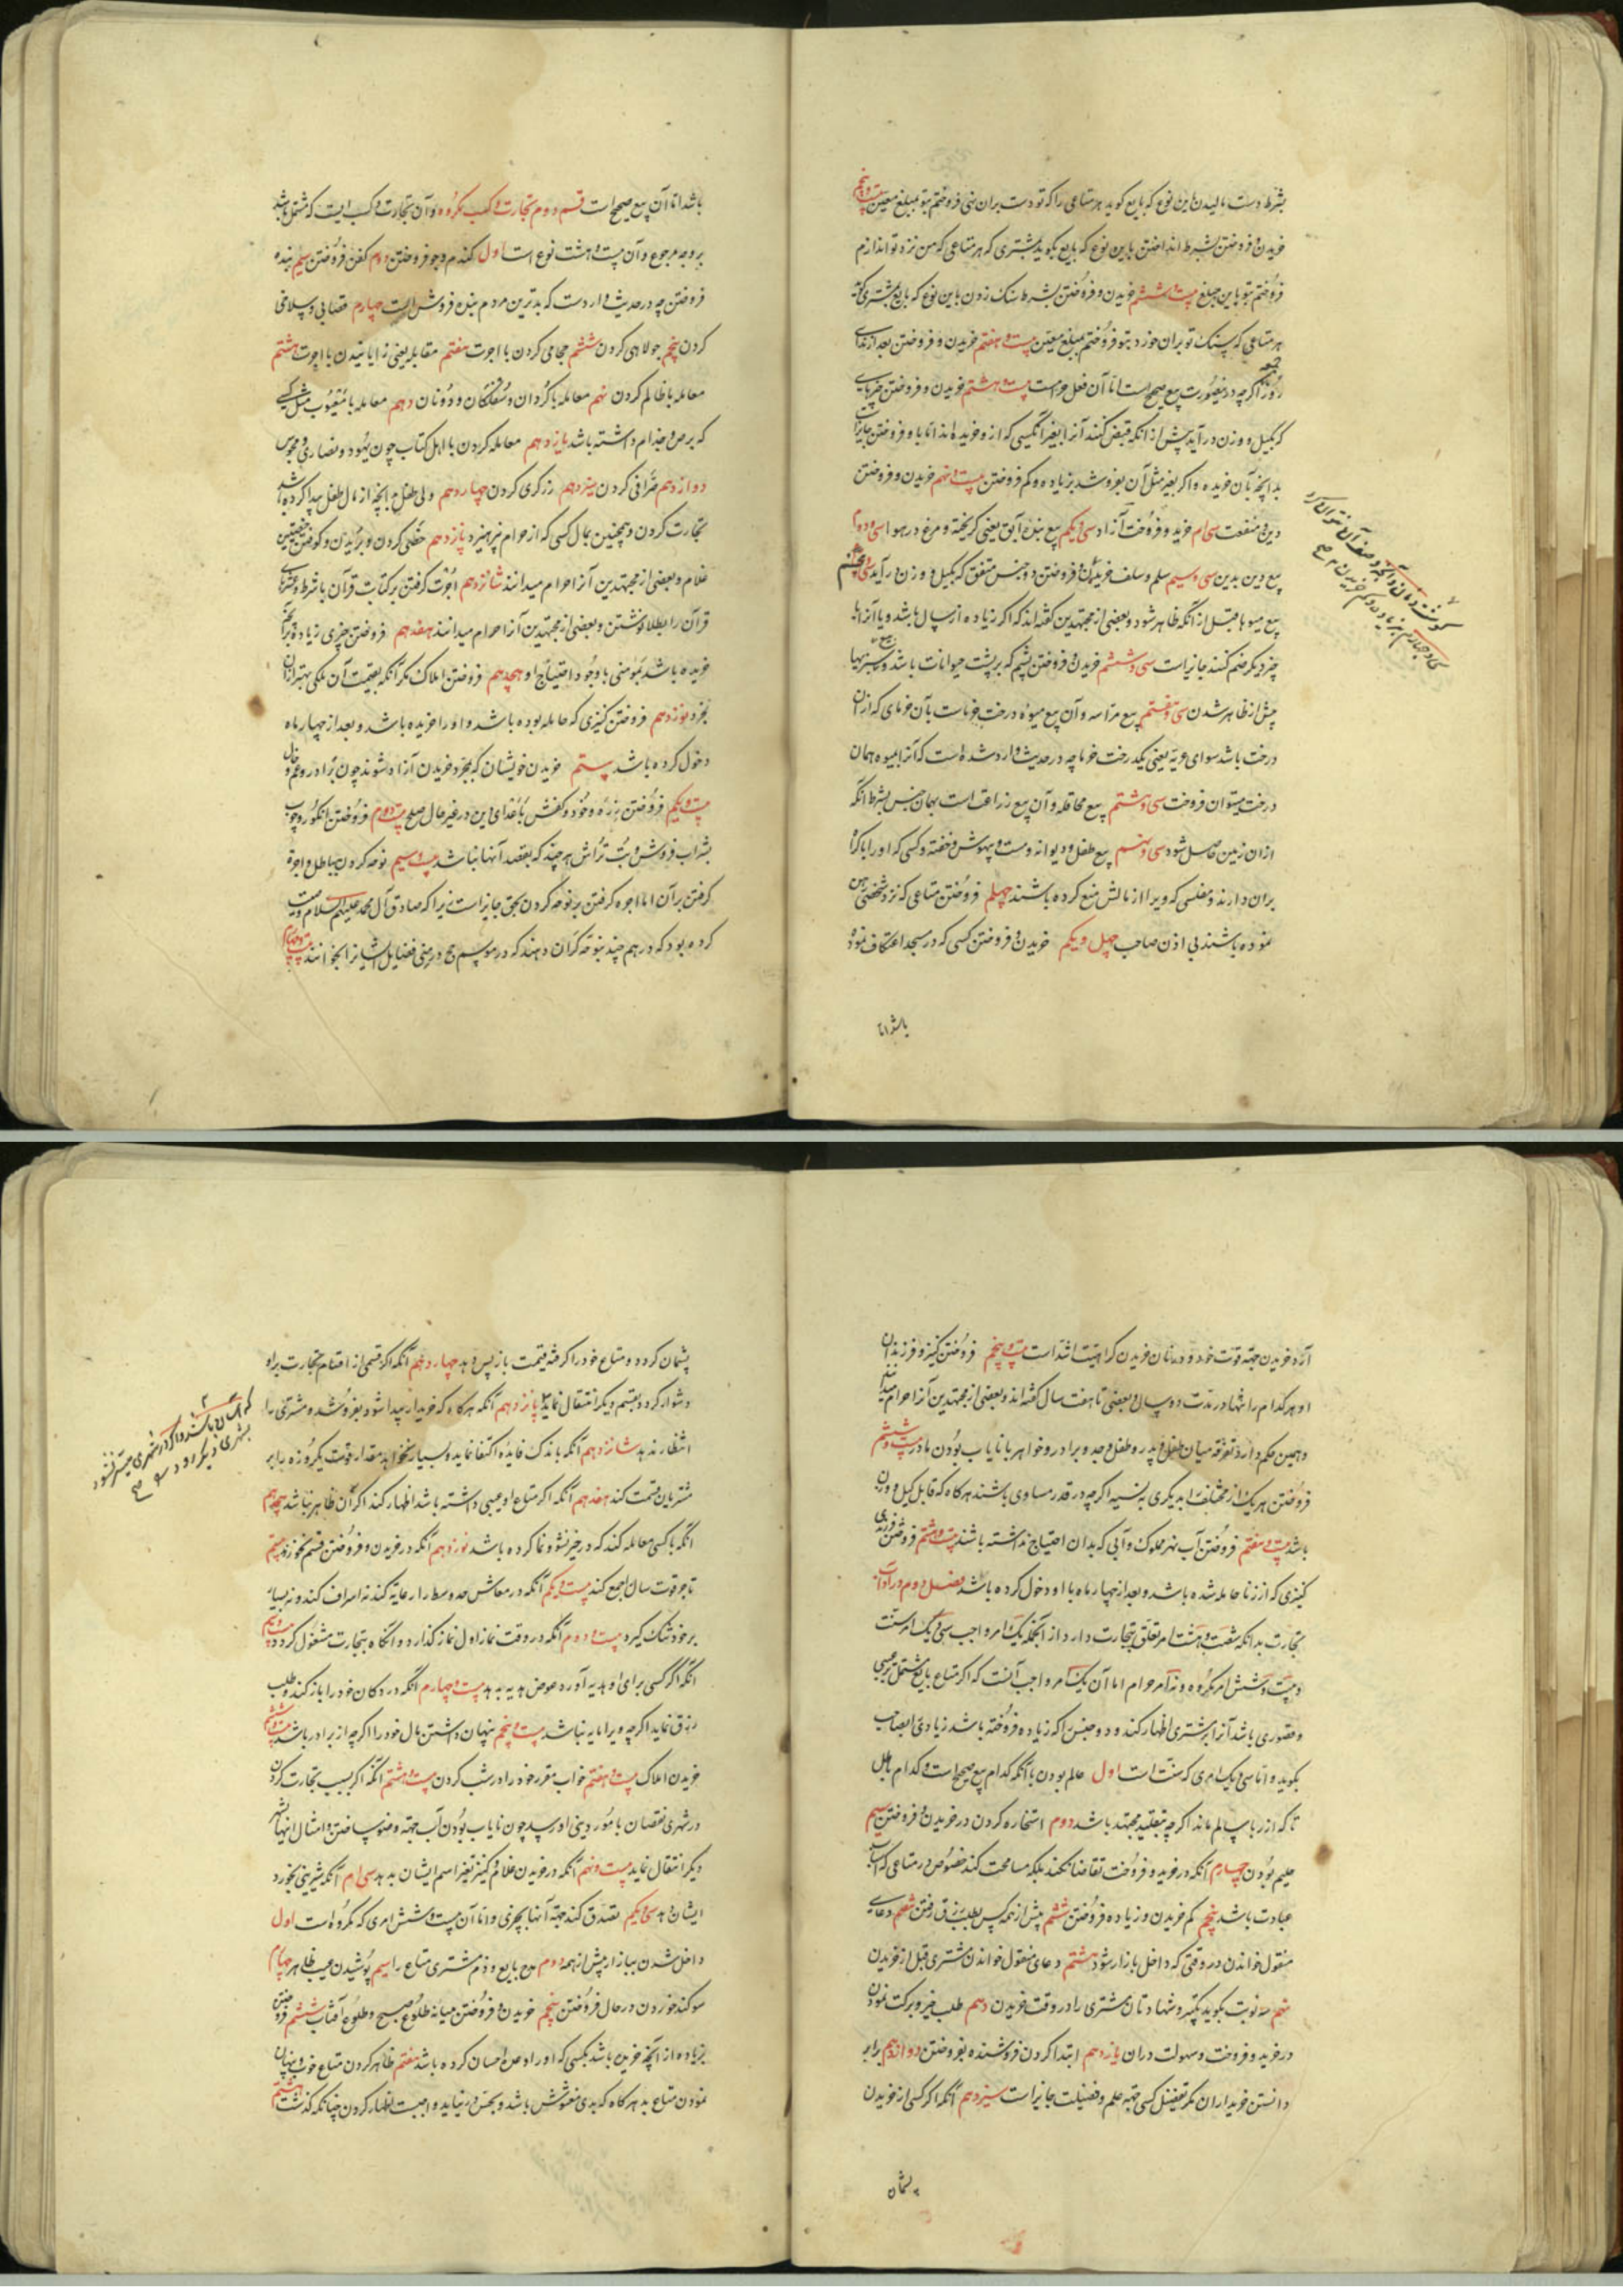 بشرط دست مالیدن باین نوع که بایع کوید هر متاعی را که تو دست بران نهی فروختم بتو بمبلغ معین بیست و پنجم
خریدن و فروختن بشرط انداختن باین نوع که بایع بکوید بمشتری که هر متاعی که من نزد تو اندازم
فروختم بتو باین مبلغ بیست و ششم خریدن و فروختن بشرط سنک زدن باین نوع که بایع بمشتری کوید
هر متاعی که سنک تو بران خورد بتو فروختم بمبلغ معین بیست و هفتم خریدن و فروختن بعد از ندای
روز جمعه اکرچه درینصورت بیع صحیح است اما آن فعل حرامست بیست و هشتم خریدن و فروختن چیزهایی
که بکیل و وزن در آید پیش از انکه قبض کنند آنرا بغیر انکسی که ازو خریده اند اما باو فروختن جایزاست
بدانچه بآن خریده و اکر بغیر مثل آن بفروشد بزیاده و کم فروختن بیست و نهم خریدن و فروختن
دین و منفعت سی ام خرید و فروخت آزاد سی و یکم بیع بنده آبق یعنی کریخته و مرغ در هوا سی و دوم
بیع دین بدین سی و سیم سلم و سلف خریدن و فروختن دو جنس متفق که بکیل و وزن در آید سی و پنجم
بیع میوها قبل از انکه ظاهر شود و بعضی از مجتهدین کفته اند که اکر زیاده از سال باشد و یا آنرا با
چیز دیکر ضم کنند جایز است سی و ششم خریدن و فروختن پشم که بر پشت حیوانات باشد و سبزیها
پیش از ظاهر شدن سی و هفتم بیع مزابنه و آن بیع میوه درخت خرماست بآن خرمای که از ان
درخت باشد سوای عریه یعنی یکدرخت خرما چه در حدیث وارد شده است که آنرا بمیوه همان
درخت میتوان فروخت سی و هشتم بیع محاقله و آن بیع زراعت است بهمان جنس بشرط انکه
از ان زمین حاصل شود سی و نهم بیع طفل و دیوانه و مست و بیهوش و خفته و کسی که او را باکراه
بران دارند و مفلسی که ویرا از مالش منع کرده باشند چهلم فروختن متاعی که نزد شخصی رهن
نموده باشند بی اذن صاحب چهل و یکم خریدن و فروختن کسی که در مسجد اعتکاف نموده
باشد اما
باشد اما آن بیع صحیح است قسم دوم تجارت و کسب مکروه و آن تجارت و کسب ایست که مشتمل باشد
بر وجه مرجوع و آن بیست و هشت نوع است اول کندم و جو فروختن دوم کفن فروختن سیم بنده
فروختن چه در حدیث وارد است که بدترین مردم بنده فروش است چهارم قصابی و سلاخی
کردن پنجم جولاهی کردن ششم حجامی کردن با اجوت هفتم مقابله یعنی زایانیدن با اجوت هشتم
معامله با ظالم کردن نهم معامله با کردان و سفلکان و دونان دهم معامله با معیوب مثل کسی
که برص و جذام داشته باشد یازدهم معامله کردن با اهل کتاب چون یهود و نصاری و مجوس
دوازدهم صرافی کردن سیزدهم زرکری کردن چهاردهم ولی طفل با نچه از مال طفل پیدا کرده باشد
تجارت کردن و همچنین بمال کسی که از حرام نپرهیزد پانزدهم خصی کردن و بریدن و کوفتن خصیتین
غلام و بعضی از مجتهدین آنرا حرام میدانند شانزدهم اجوت کرفتن بر کتابت قرآن با شرط و عشرهای
قرآن را بطلا نوشتن و بعضی از مجتهدین آنرا حرام میدانند هفدهم فروختن چیزی زیاده بر آنچه
خریده باشد بمومنی با وجود احتیاج او هجدهم فروختن املاک مکر آنکه بقیمت آن ملکی بهتر از ان
بخرد نوزدهم فروختن کنیزی که حامله بوده باشد و او را خریده باشد و بعد از چهار ماه
دخول کرده باشد بیستم خریدن خویشان که بمجرد خریدن آزاد شوند چون برادر و عم و خال
بیست و یکم فروختن زره و خود و کفش باعدای دین در غیر حال صلح بیست و دوم فروختن انکور و چوب
بشراب فروش و بت تراش هرچند که بقصد آنها نباشد بیست و سیم نوحه کردن بباطل و اجوه
کرفتن بر آن اما اجوه کرفتن بر نوحه کردن بحق جایز است زیرا که صادق آل محمد علیهم السلام وصیت
کرده بود که درهم چند بنوحه کران دهند که در موسم حج در منی فضایل ایشانرا بخوانند بیست و چهارم
آزاد خریدن جهة قوت خود و و نان خریدن کراهیتش اشد است بیست و پنجم فروختن کنیز و فرزند آن
او هر کدام را تنها در مدت دو سال و بعضی تا هفت سال کفته اند و بعضی از مجتهدین آنرا حرام میدانند
و همین حکم دارد تفرقه میان طفل و پدر و طفل و جد و برادر و خواهر با نایاب بودن مادر بیست و ششم
فروختن هر یک از مختلف را بدیکری به نسیه اکرچه در قدر مساوی باشند هرکاه که قابل کیل و وزن
باشد بیست و هفتم فروختن آب نهر مملوک و آبی که بدان احتیاج نداشته باشند بیست و هشتم فروختن فرزندی
کنیزی که از زنا حامله شده باشد و بعد از چهار ماه با او دخول کرده باشد فصل دوم در آداب
تجارت بدانکه شصت و هشت امر تعلق بتجارت دارد از انجمله یک امر واجب سی و یک امر سنت
و بیست و شش امر مکروه و نه امر حرام اما آن یک امر واجب آنست که اکر متاع بایع مشتمل بر عیبی
و قصوری باشد آنرا بمشتری اظهار کند و دو جنس را که زیاده فروخته باشد زیادتی را بصاحب
بکوید و اما سی و یک امری که سنت است اول عالم بودن بآنکه کدام بیع صحیح است و کدام باطل
تا که از ربا سالم ماند اکرچه بتقلید مجتهد باشد دوم استخاره کردن در خریدن و فروختن سیم
حلیم بودن چهارم آنکه در خرید و فروخت تقاضا نکند بلکه مسامحت کند خصوص در متاعی که اسباب
عبادت باشد پنجم کم خریدن و زیاده فروختن ششم پیش از همه کس بطلب رزق رفتن هفتم دعای
منقول خواندن در وقتی که داخل بازار شود هشتم دعای منقول خواندن مشتری قبل از خریدن
نهم سه نوبت بکوید تکبیر و شهادتان مشتری را در وقت خریدن دهم طلب خیر و برکت نمودن
در خرید و فروخت و سهولت دران یازدهم ابتدا کردن فروشنده بفروختن دوازدهم برابر
دانستن خریداران مکر تفضل کسی جهة علم و فضیلت جایز است سیزدهم آنکه اکر کسی از خریدن
پشمان
پشمان کردد و متاع خود را کرفته قیمت باز پس دهد چهاردهم آنکه اکر قسمی از اقسام تجارت برو
دشوار کردد بقسم دیکر انتقال نماید پانزدهم آنکه هرکاه که خریدار پیدا شود بفروشد و مشتری را
انتظار ندهد شانزدهم آنکه باندک فایده اکتفا نماید و بسیار نخواهد مقدار قوت یکروزه را بر
مشتریان قسمت کند هفدهم آنکه اکر متاع او عیبی داشته باشد اظهار کند اکر آن ظاهر نباشد هجدهم
آنکه با کسی معامله کند که در خیر نشو و نما کرده باشد نوزدهم آنکه در خریدن و فروختن قسم نخورند بیستم
تاجر قوت سال را جمع کند بیست و یکم آنکه در معاش حد وسط را رعایة کند نه اسراف کند و نه بسیار
بر خود تنک کیرد بیست و دوم آنکه در وقت نماز اول نماز کذارد و انکاه بتجارت مشغول کردد بیست و سیم
آنکه اکر کسی برای او هدیه آورد عوض هدیه بدهد بیست و چهارم آنکه در دکان خود را باز کند و طلب
رزق نماید اکرچه ویرا مایه نباشد بیست و پنجم پنهان داشتن مال خود را اکرچه از برادر باشد بیست و ششم
خریدن املاک بیست و هفتم خواب مقرره خود را در شب کردن بیست و هشتم آنکه اکر بسبب تجارت کردن
در شهری نقصان بامور دینی او رسد چون نایاب بودن آب جهة وضو ساختن و امثال اینها بشهر
دیکر انتقال نماید بیست و نهم آنکه در خریدن غلام و کنیز تغیر اسم ایشان بدهد سی ام آنکه شیرینی بخورد
ایشان دهد سی و یکم تصدق کند جهة آنها بچیزی و اما آن بیست و شش امری که مکروه است اول
داخل شدن ببازار پیش از همه دوم مدح بایع و ذم مشتری متاع را سیم پوشیدن عیب ظاهر چهارم
سوکند خوردن در حال فروختن پنجم خریدن و فروختن میانه طلوع صبح و طلوع آفتاب ششم فروختن
بزیاده از آنچه خریده باشد بکسی که او را وعده احسان کرده باشد هفتم ظاهر کردن متاع خوب و پنهان
نمودن متاع بد هرکاه که بدی مغشوش باشد و بحس در نیاید واجبست اظهار کردن چنانکه کذشت هشتم